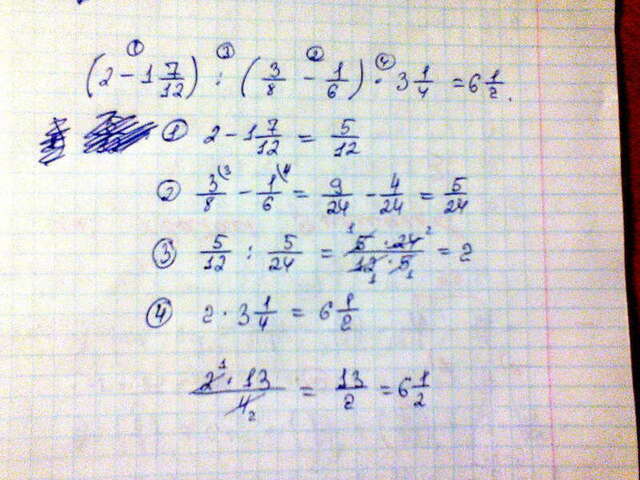 (2 - 1 7/12) : (3/8 - 1/6) · 3 1/4 = 6 1/2.
① 2 - 1 7/12 = 5/12
② 3/8 (3 - 1/6 (4 = 9/24 - 4/24 = 5/24
③ 5/12 : 5/24 = 5 · 24 / 12 · 5 = 2
④ 2 · 3 1/4 = 6 1/2
2 · 13 / 4 = 13/2 = 6 1/2